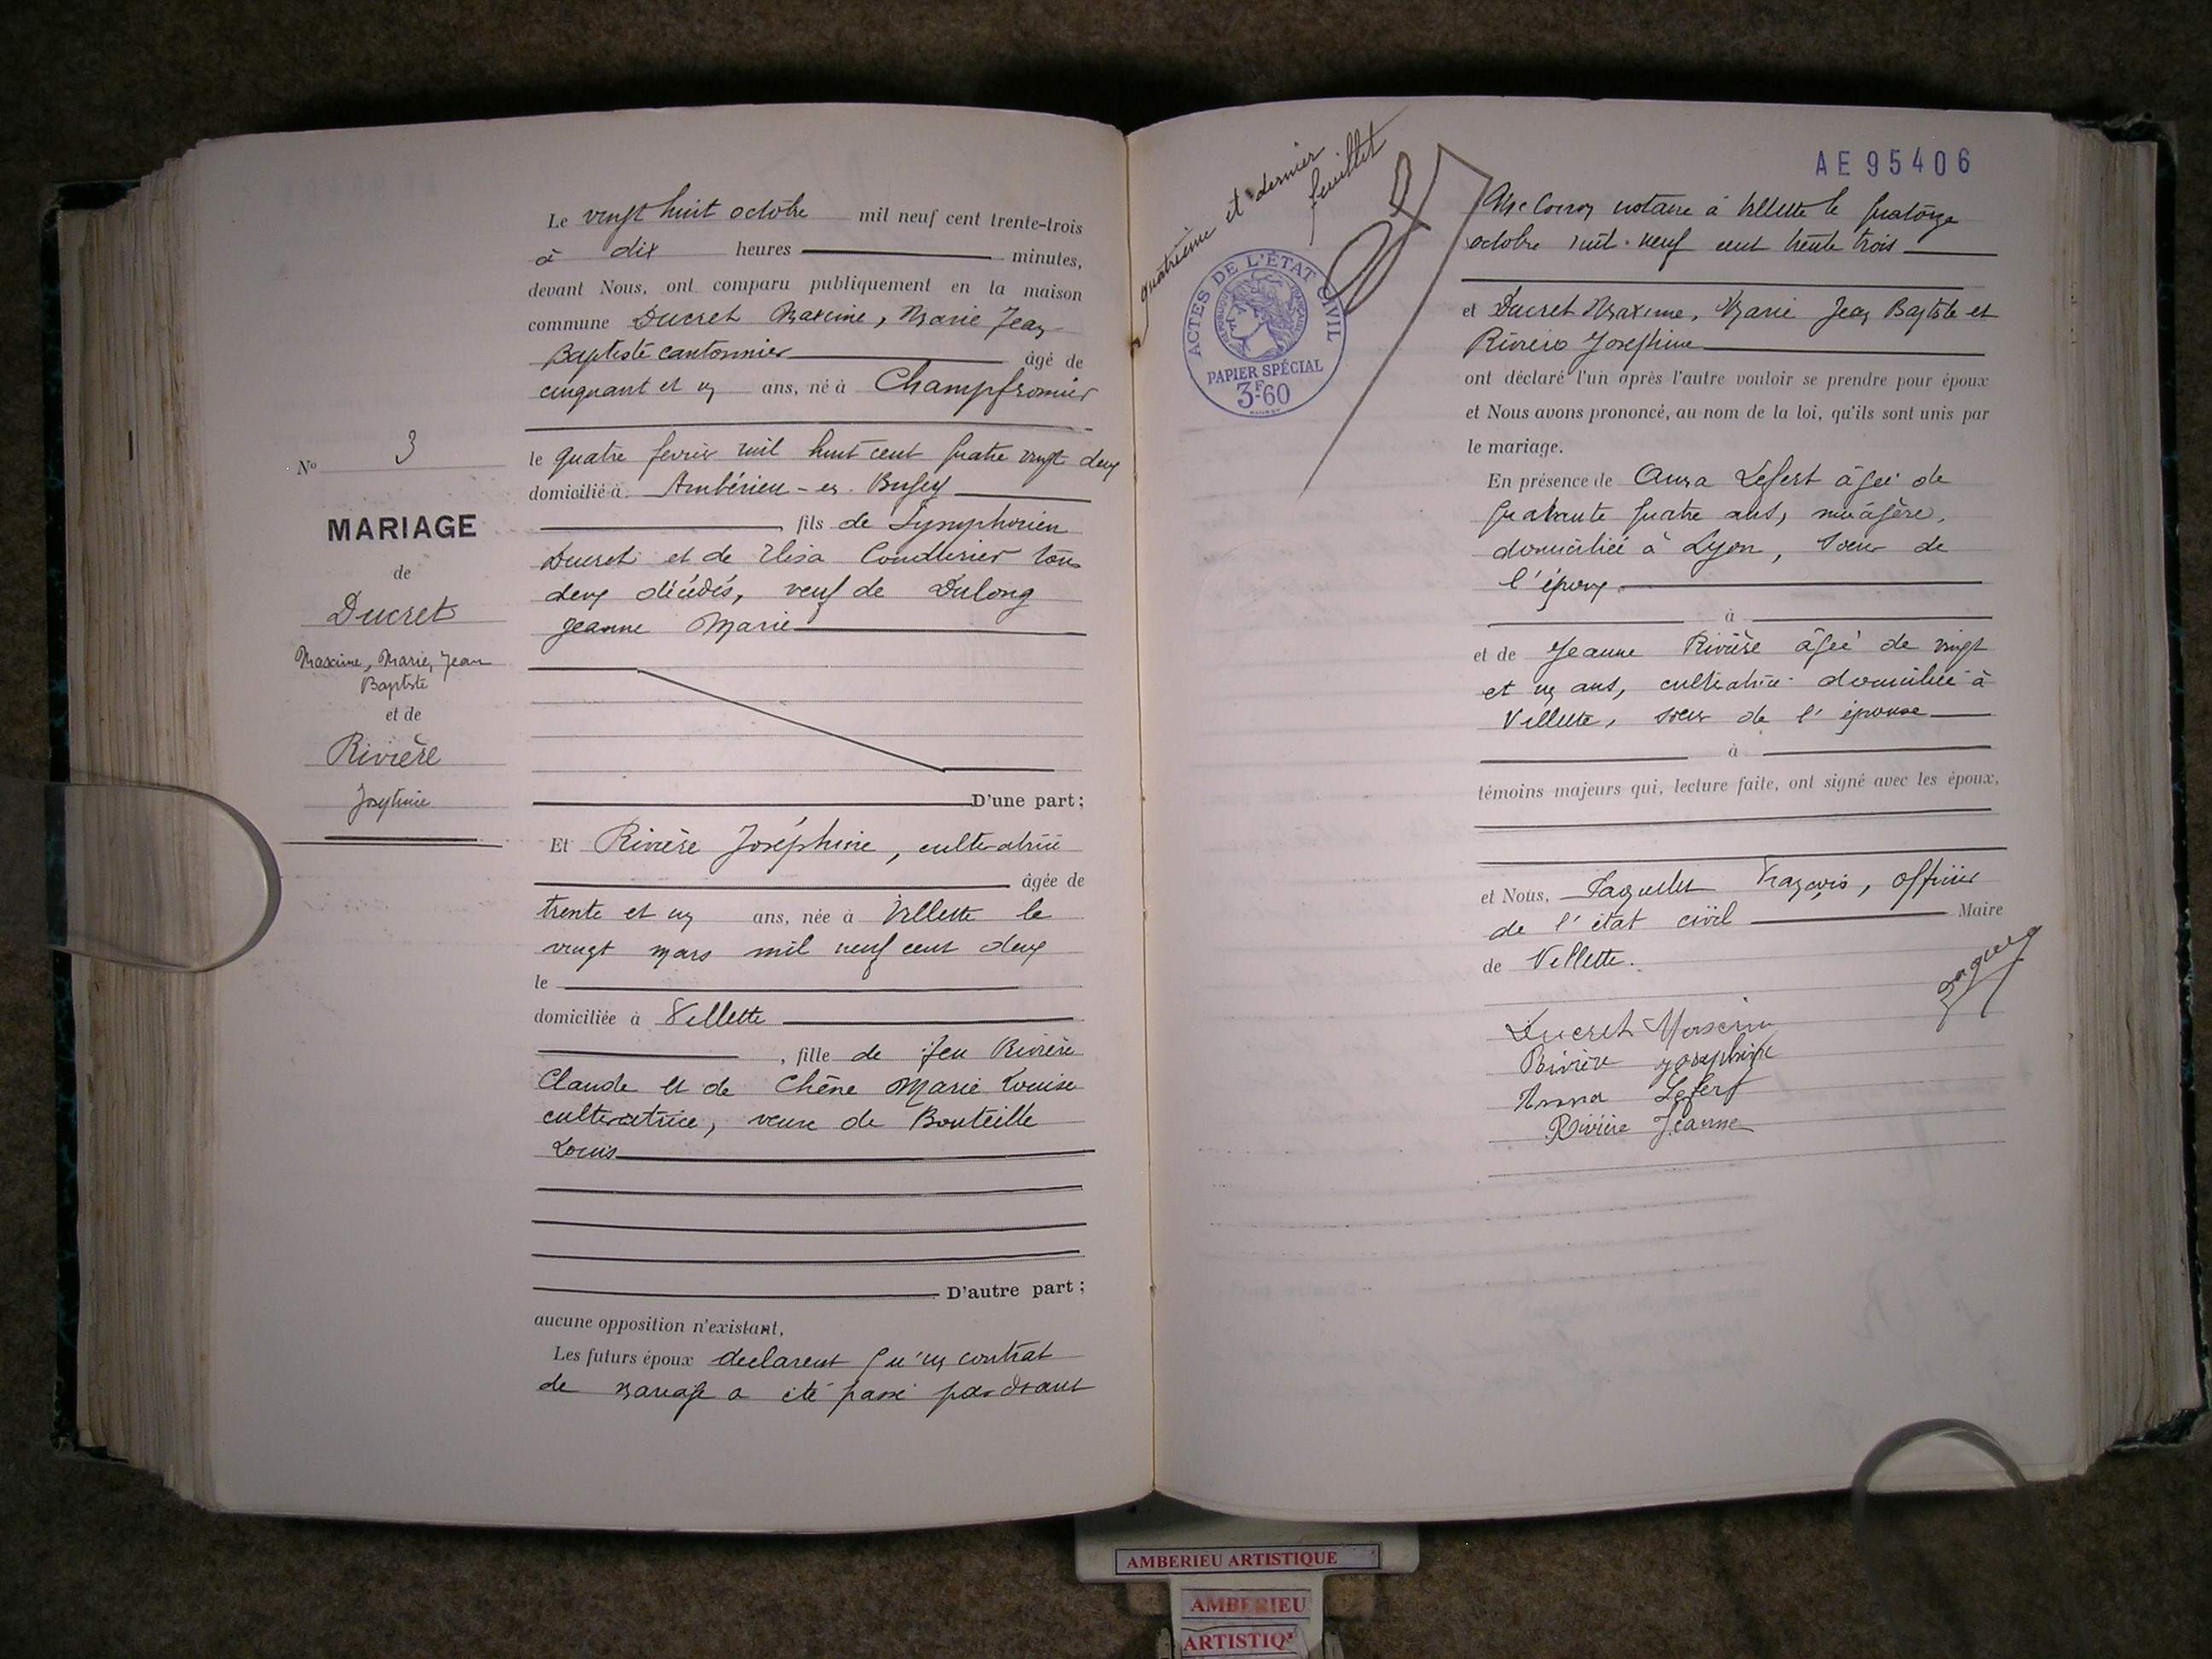 Le vingt huit octobre mil neuf cent trente-trois
à dix heures minutes,
devant Nous, ont comparu publiquement en la maison
commune Ducret Maxime, Marie Jean
Baptiste cantonnier âgé de
cinquant et un ans, né à Champfromier
le quatre fevrier mil huit cent quatre vingt deux
domicilié à Ambérieu-en-Bugey
fils de Symphorien
Ducret et de Elisa Coudurier tous
deux décédés, veuf de Dulong
Jeanne Marie
D'une part;
N° 3
MARIAGE
de
Ducret
Maxime, Marie, Jean
Baptiste
et de
Rivière
Joséphine
Et Rivière Joséphine, cultivatrice
âgée de
trente et un ans, née à Villette le
vingt mars mil neuf cent deux
le
domiciliée à Villette
, fille de feu Rivière
Claude et de Chêne Marie Louise
cultivatrice, veuve de Bouteille
Louis
D'autre part;
aucune opposition n'existant,
Les futurs époux déclarent qu'un contrat
de mariage a été passé par devant
quatrième et dernier
feuillet
ACTES DE L'ÉTAT CIVIL
RÉPUBLIQUE FRANÇAISE
PAPIER SPÉCIAL
3F60
AE95406
Me notaire à Villette le quatorze
octobre mil neuf cent trente trois
et Ducret Maxime, Marie Jean Baptiste et
Rivière Joséphine
ont déclaré l'un après l'autre vouloir se prendre pour époux
et Nous avons prononcé, au nom de la loi, qu'ils sont unis par
le mariage.
En présence de Anna Lefert âgée de
quarante quatre ans, ménagère,
domiciliée à Lyon, soeur de
l'époux
à
et de Jeanne Rivière âgée de vingt
et un ans, cultivatrice domiciliée à
Villette, soeur de l'épouse
à
témoins majeurs qui, lecture faite, ont signé avec les époux,
et Nous, François, officier
de l'état civil Maire
de Villette.
Ducret Maxime
Rivière Joséphine
Anna Lefert
Rivière Jeanne
AMBERIEU ARTISTIQUE
AMBERIEU
ARTISTIQ